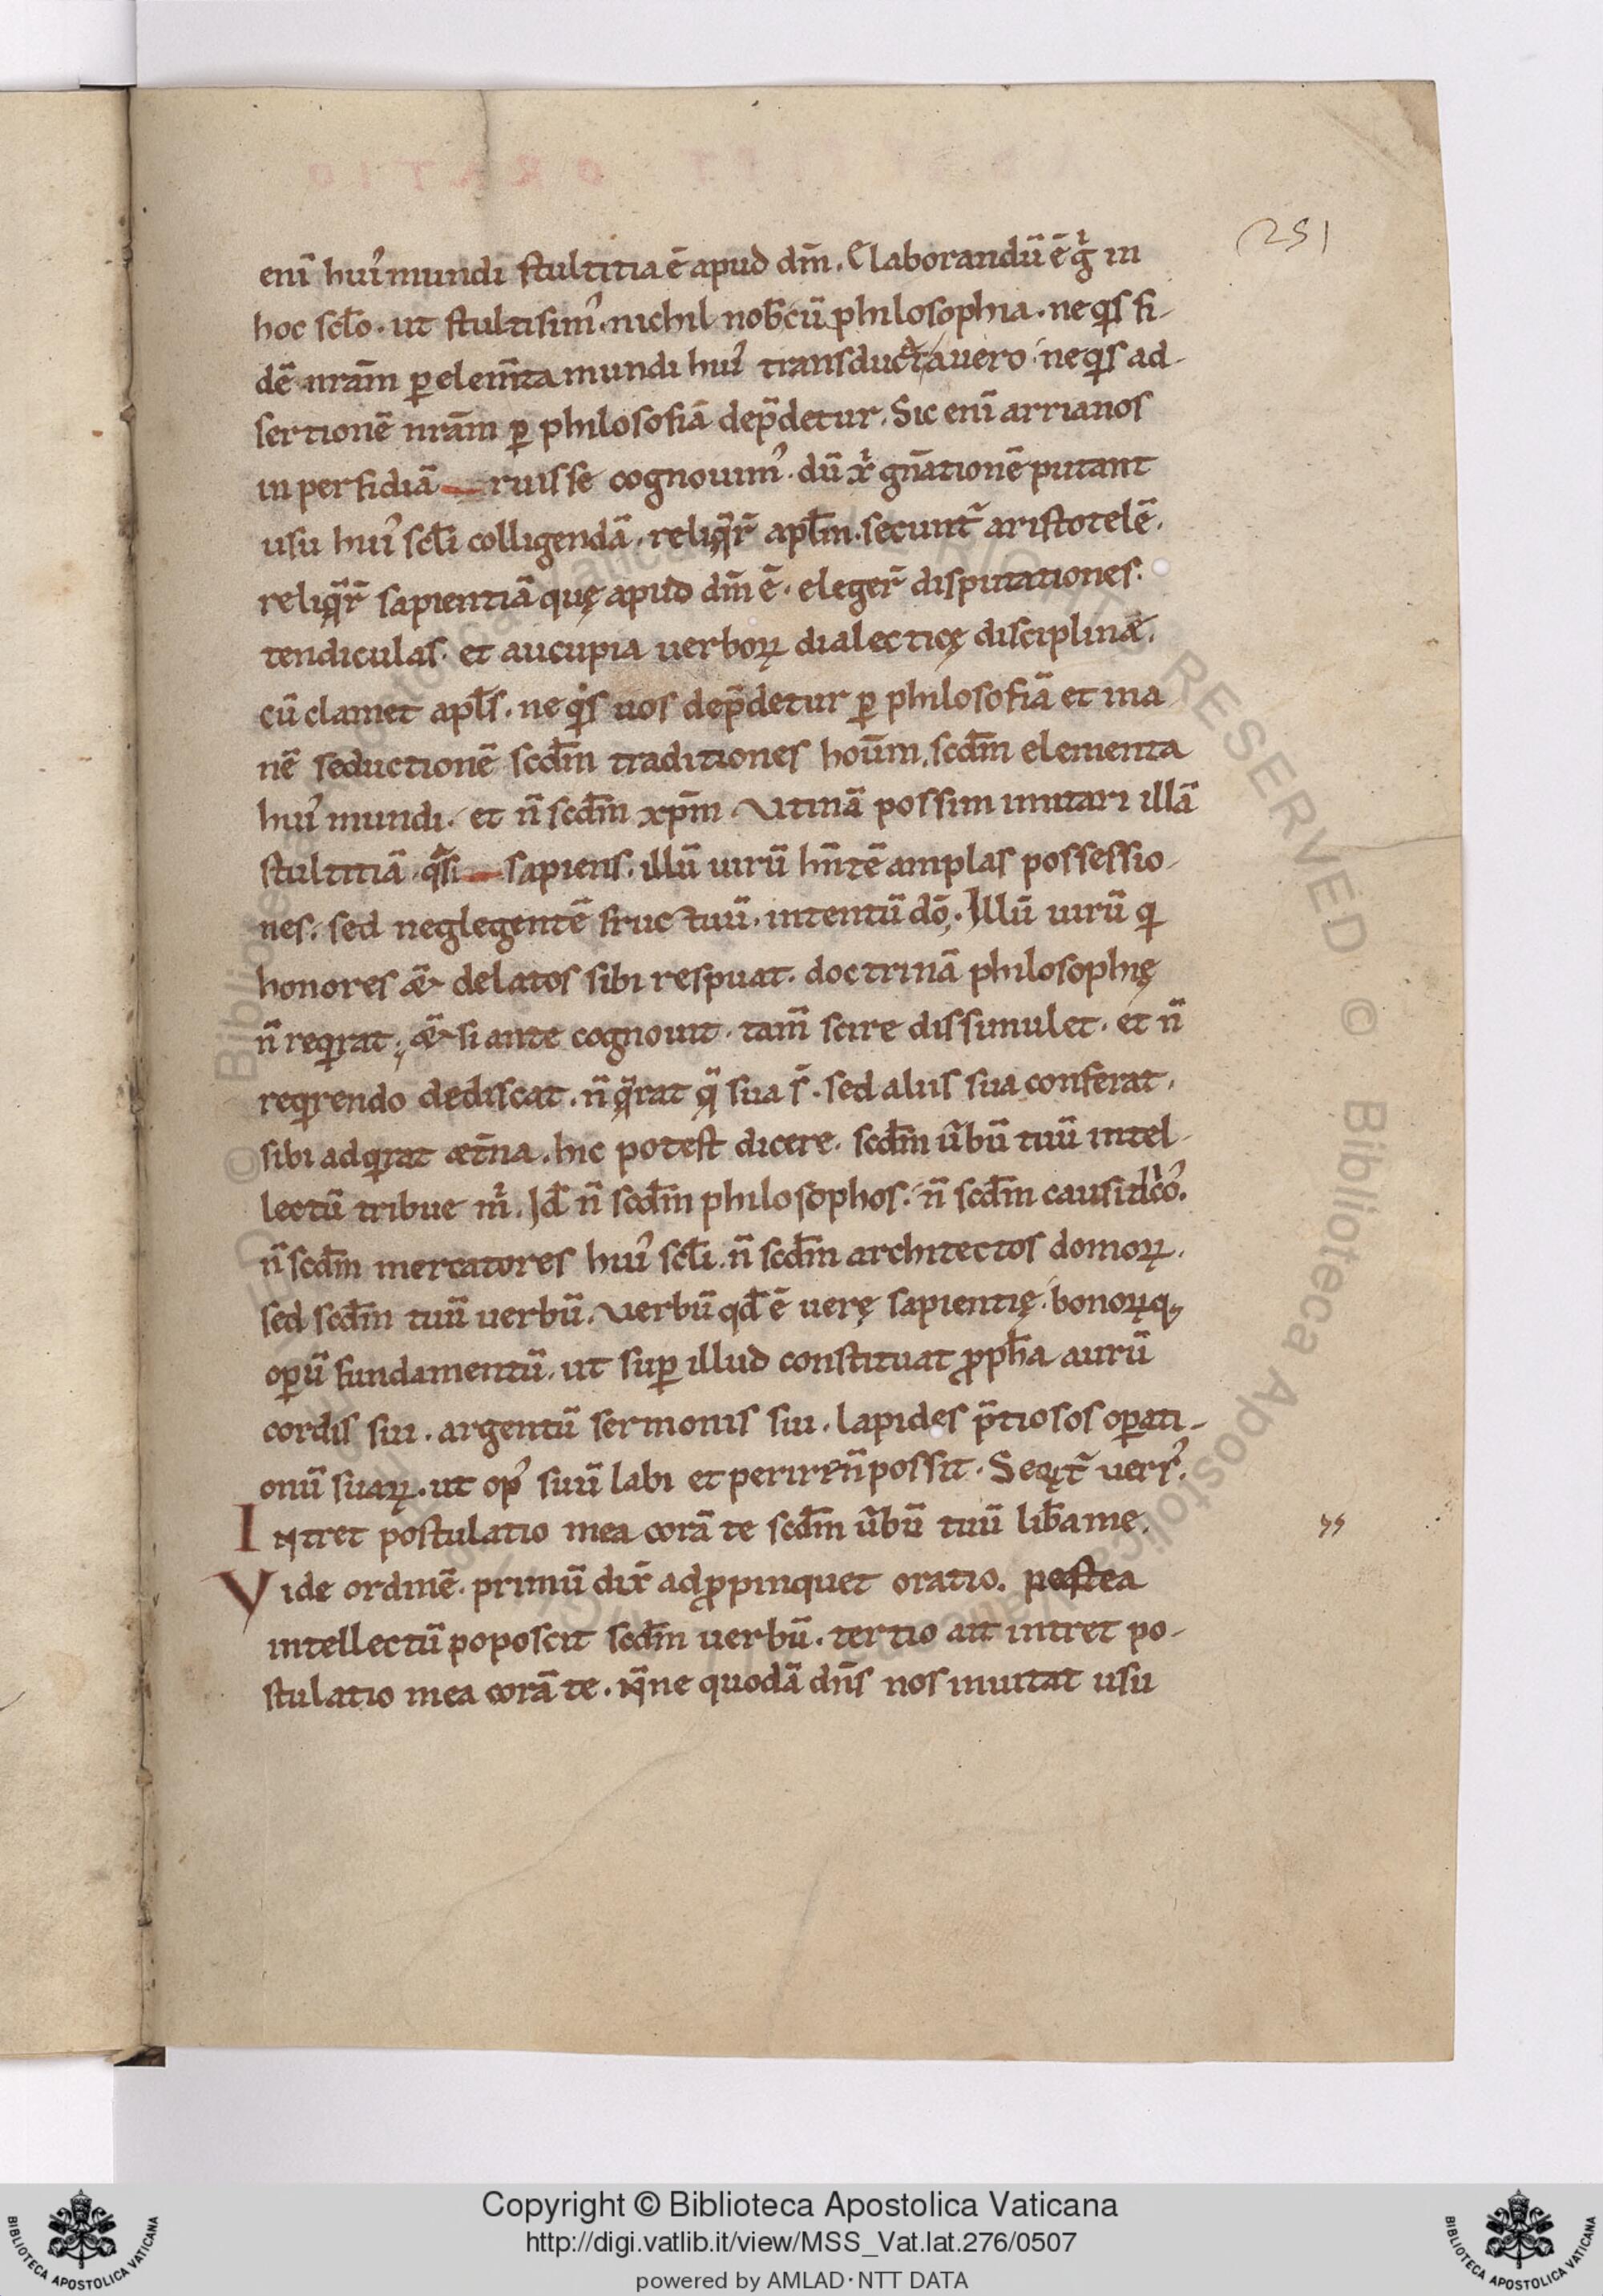 251
enī hui᷒ mundi stultitia ē apud dm̄. Elaborandū ē g̊ in
hoc scl̄o. ut stultisim᷒. nichil nob̄ cū philosophia. ne q̇s fi-
dē nrām ꝑ elem̄ta mundi hui᷒ transducta uero. ne q̇s ad-
sertionē nrām ꝑ philosofiā dep̄detur. Sic enī arrianos
in perfidiā ruisse cognouim᷒. dū xͥ gn̄ationē putant
usu hui᷒ scl̄i colligendā. reliq̄r̄ apl̄m. secunt᷑ aristotelē.
reliq̄r̄ sapientiā quę apud dm̄ ē. eleger̄ disputationes.
tendiculas. et aucupia uerboꝝ dialecticę disciplinæ.
cū clamet apl̄s. ne q̇s uos dep̄detur ꝑ philosofiā et ina
nē seductionē scd̄m traditiones hoūm. scd̄m elementa
hui᷒ mundi. et n̄ scd̄m xp̄m. Vtinā possim imitari illā
stultitiā. qͣsi sapiens. illū uirū hn̄tē amplas possessio-
nes. sed neglegentē fructuū. intentū dō. Illū uirū q̇
honores & delatos sibi respuat. doctrinā philosophię
n̄ req̇rat. & si ante cognouit. tam̄ scire dissimulet. et n̄
req̇rendo dediscat. n̄ q̄rat q̄ sua s̄. sed aliis sua conferat.
sibi adq̇rat æt̄na. hic potest dicere. scd̄m ūbū tuū intel-
lectū tribue m̊. Id̄ n̄ scd̄m philosophos. n̄ scd̄m causidico᷒.
n̄ scd̄m mercatores hui᷒ scl̄i. n̄ scd̄m architectos domoꝝ.
sed scd̄m tuū uerbū. Verbū qd̄ ē uerę sapientię. bonoꝝq;
oꝑū fundamentū. ut suꝑ illud constituat ꝓph̄a aurū
cordis sui. argentū sermonis sui. lapides p̄tiosos oꝑati-
onū suaꝝ. ut op᷒ suū labi et perire n̄ possit. Seqͥt᷑ uers᷒.
Intret postulatio mea corā te scd̄m ūbū tuū lib̄a me.
Vide ordinē. primū dix̄ adꝓpinquet oratio. postea
intellectū poposcit scd̄m uerbū. tertio ait intret po-
stulatio mea corā te. Nͣne quodā dn̄s nos inuitat usu
Copyright © Biblioteca Apostolica Vaticana
http://digi.vatlib.it/view/MSS_Vat.lat.276/0507
powered by AMLAD·NTT DATA
BIBLIOTECA APOSTOLICA VATICANA
BIBLIOTECA APOSTOLICA VATICANA